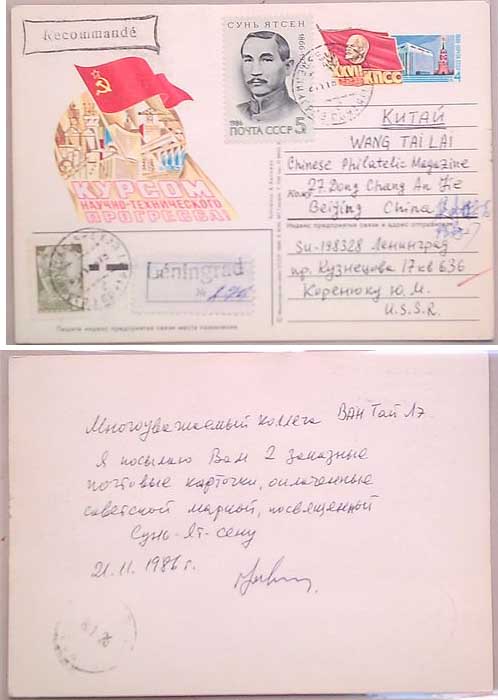 Recommandé
СУНЬ ЯТСЕН
1866
1986
ПОЧТА СССР
5
XXVII
СЪЕЗД
КПСС
КУРСОМ
НАУЧНО-ТЕХНИЧЕСКОГО
ПРОГРЕССА!
КИТАЙ
WANG TAI LAI
Chinese Philatelic Magazine
Кому 27 Dong Chang An Jie
Beijing China
Индекс предприятия связи и адрес отправителя
Su-198328 Ленинград
пр. Кузнецова 17 кв 636
Коренюку Ю. М.
U.S.S.R.
Léningrad
№
Пишите индекс предприятия связи места назначения
Многоуважаемый коллега ВАН Тай Лэ
Я посылаю Вам 2 заказные
почтовые карточки, оплаченные
советской маркой, посвященной
Сунь-Ят-сену
21.11.1986 г.